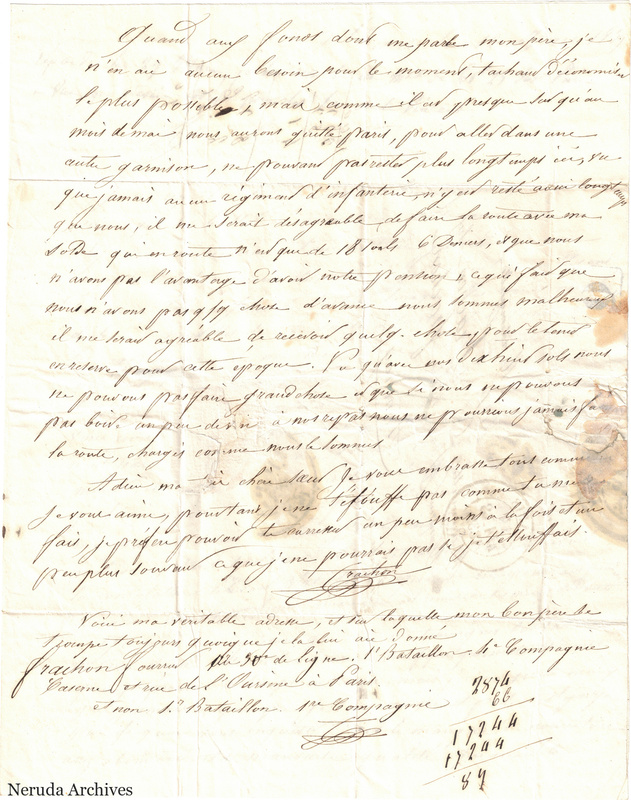 Quand aux fonds dont me parle mon père, je
n'en ai aucun besoin pour le moment, tachant d'économiser
le plus possible, mais comme il est presque sur qu'au
mois de mai nous aurons quitté paris, pour aller dans une
autre garnison, ne pouvant pas rester plus longtemps ici, vu
que jamais aucun régiment d'infanterie, n'y est resté aussi longtemps
que nous, il me serait désagréable de faire la route avec ma
solde qui en route n'est que de 18 sols 6 Deniers, et que nous
n'avons pas l'avantage d'avoir notre pension, ce qui fait que
nous n'avons pas q/q chose d'avance nous sommes malheureux
il me serait agréable de recevoir quelq. chose, pour le tenir
en reserve pour cette époque. Vu qu'avec nos dix huit sols nous
ne pouvons pas faire grand chose et que si nous ne pouvons
pas boire un peu de vin a nos repas nous ne pourrions jamais fa
la route, chargés comme nous le sommes
Adieu ma chère sœur Je vous embrasse tous comme
Je vous aime, pourtant je ne t'étouffe pas comme tu me
fais, je préfère pouvoir te caresser un peu moins à la fois et un
peu plus souvent a que je ne pourrais pas si je t'étouffais.
Frachon
Voici ma véritable adresse, et sur laquelle mon bon père se
trompe toujours quoique je la lui ai donné
Frachon fourrier de ligne. 1er Bataillon. 4e Compagnie
Caserne et rue de l'Oursine à Paris.
et non 1er Bataillon. 1re Compagnie
2874
66
17244
17244
89
Neruda Archives